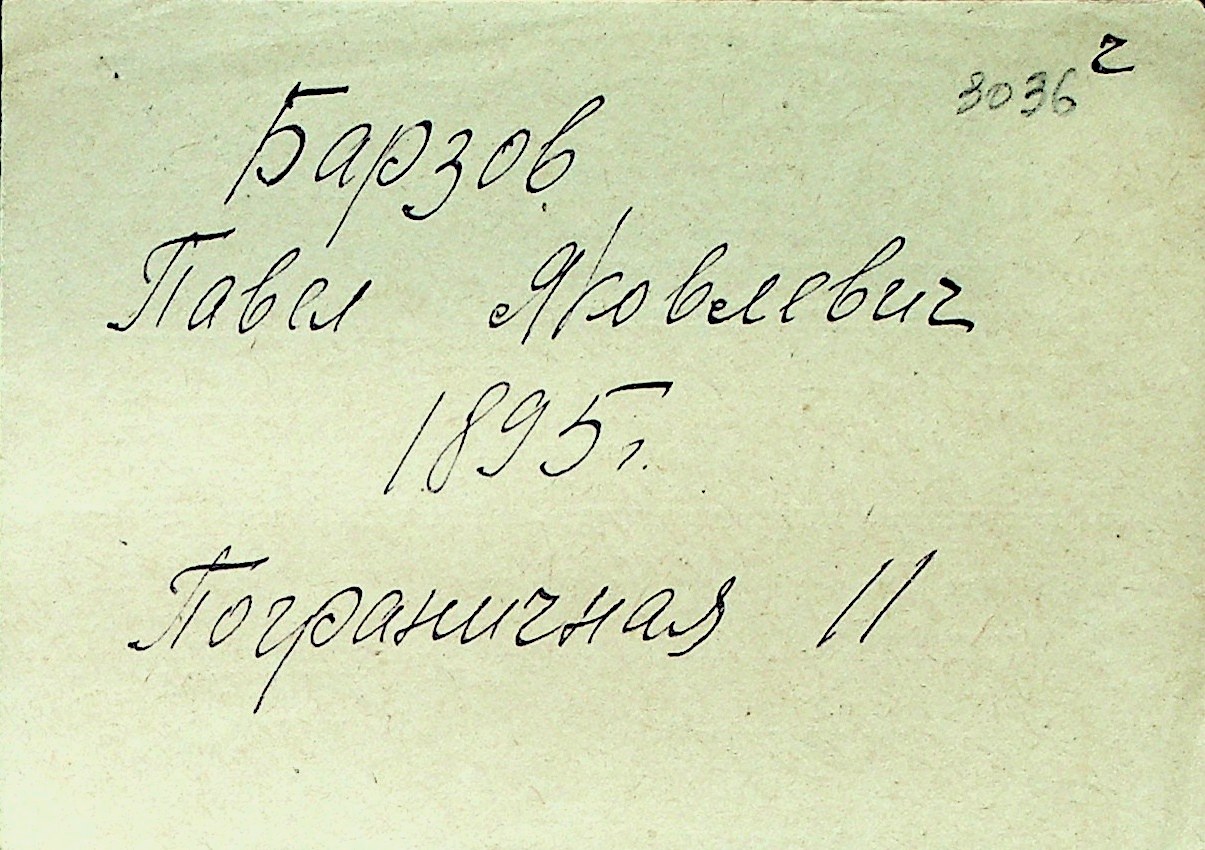 3036 г
Барзов
Павел Яковлевич
1895г.
Пограничная 11